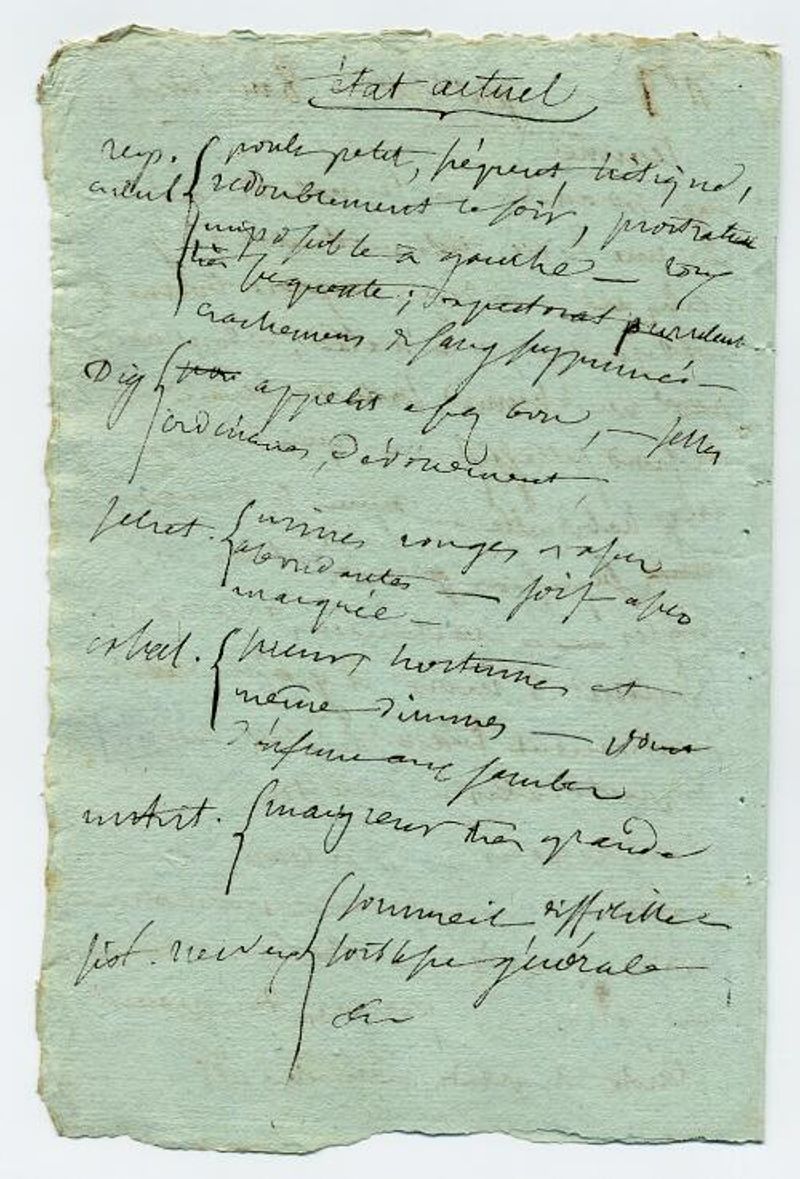 état actuel
resp. pouls petit, fréquent, hectique,
circul redoublement le soir, prostration
impossible à gauche — toux
très fréquente ; expectorat purulent
crachemens de sang supprimés —
Dig appetit assez bon, — selles
ordinaires, Dévoiement
secret. urines rouges assez
abondantes — soif assez
marquée —
exhal. sueurs nocturnes et
même diurnes —
d'enflure aux jambes
nutrit. maigreur très grande
sist. nerveux sommeil difficile
foiblesse générale